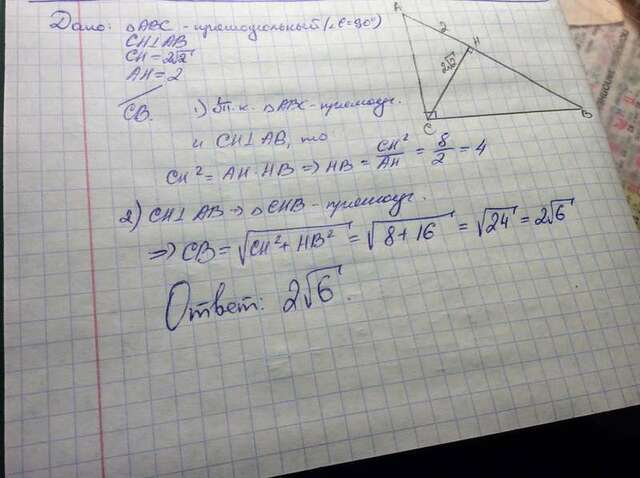 Дано: △ABC - прямоугольный (∠C=90°)
CH⊥AB
CH=2√2
AH=2
CB.
1) т.к. △ABC - прямоуг.
и CH⊥AB, то
CH² = AH·HB ⇒ HB = CH²/AH = 8/2 = 4
2) CH⊥AB → △CHB - прямоуг.
⇒ CB = √(CH² + HB²) = √(8+16) = √24 = 2√6
Ответ: 2√6.
A
2
H
2√2
C
B